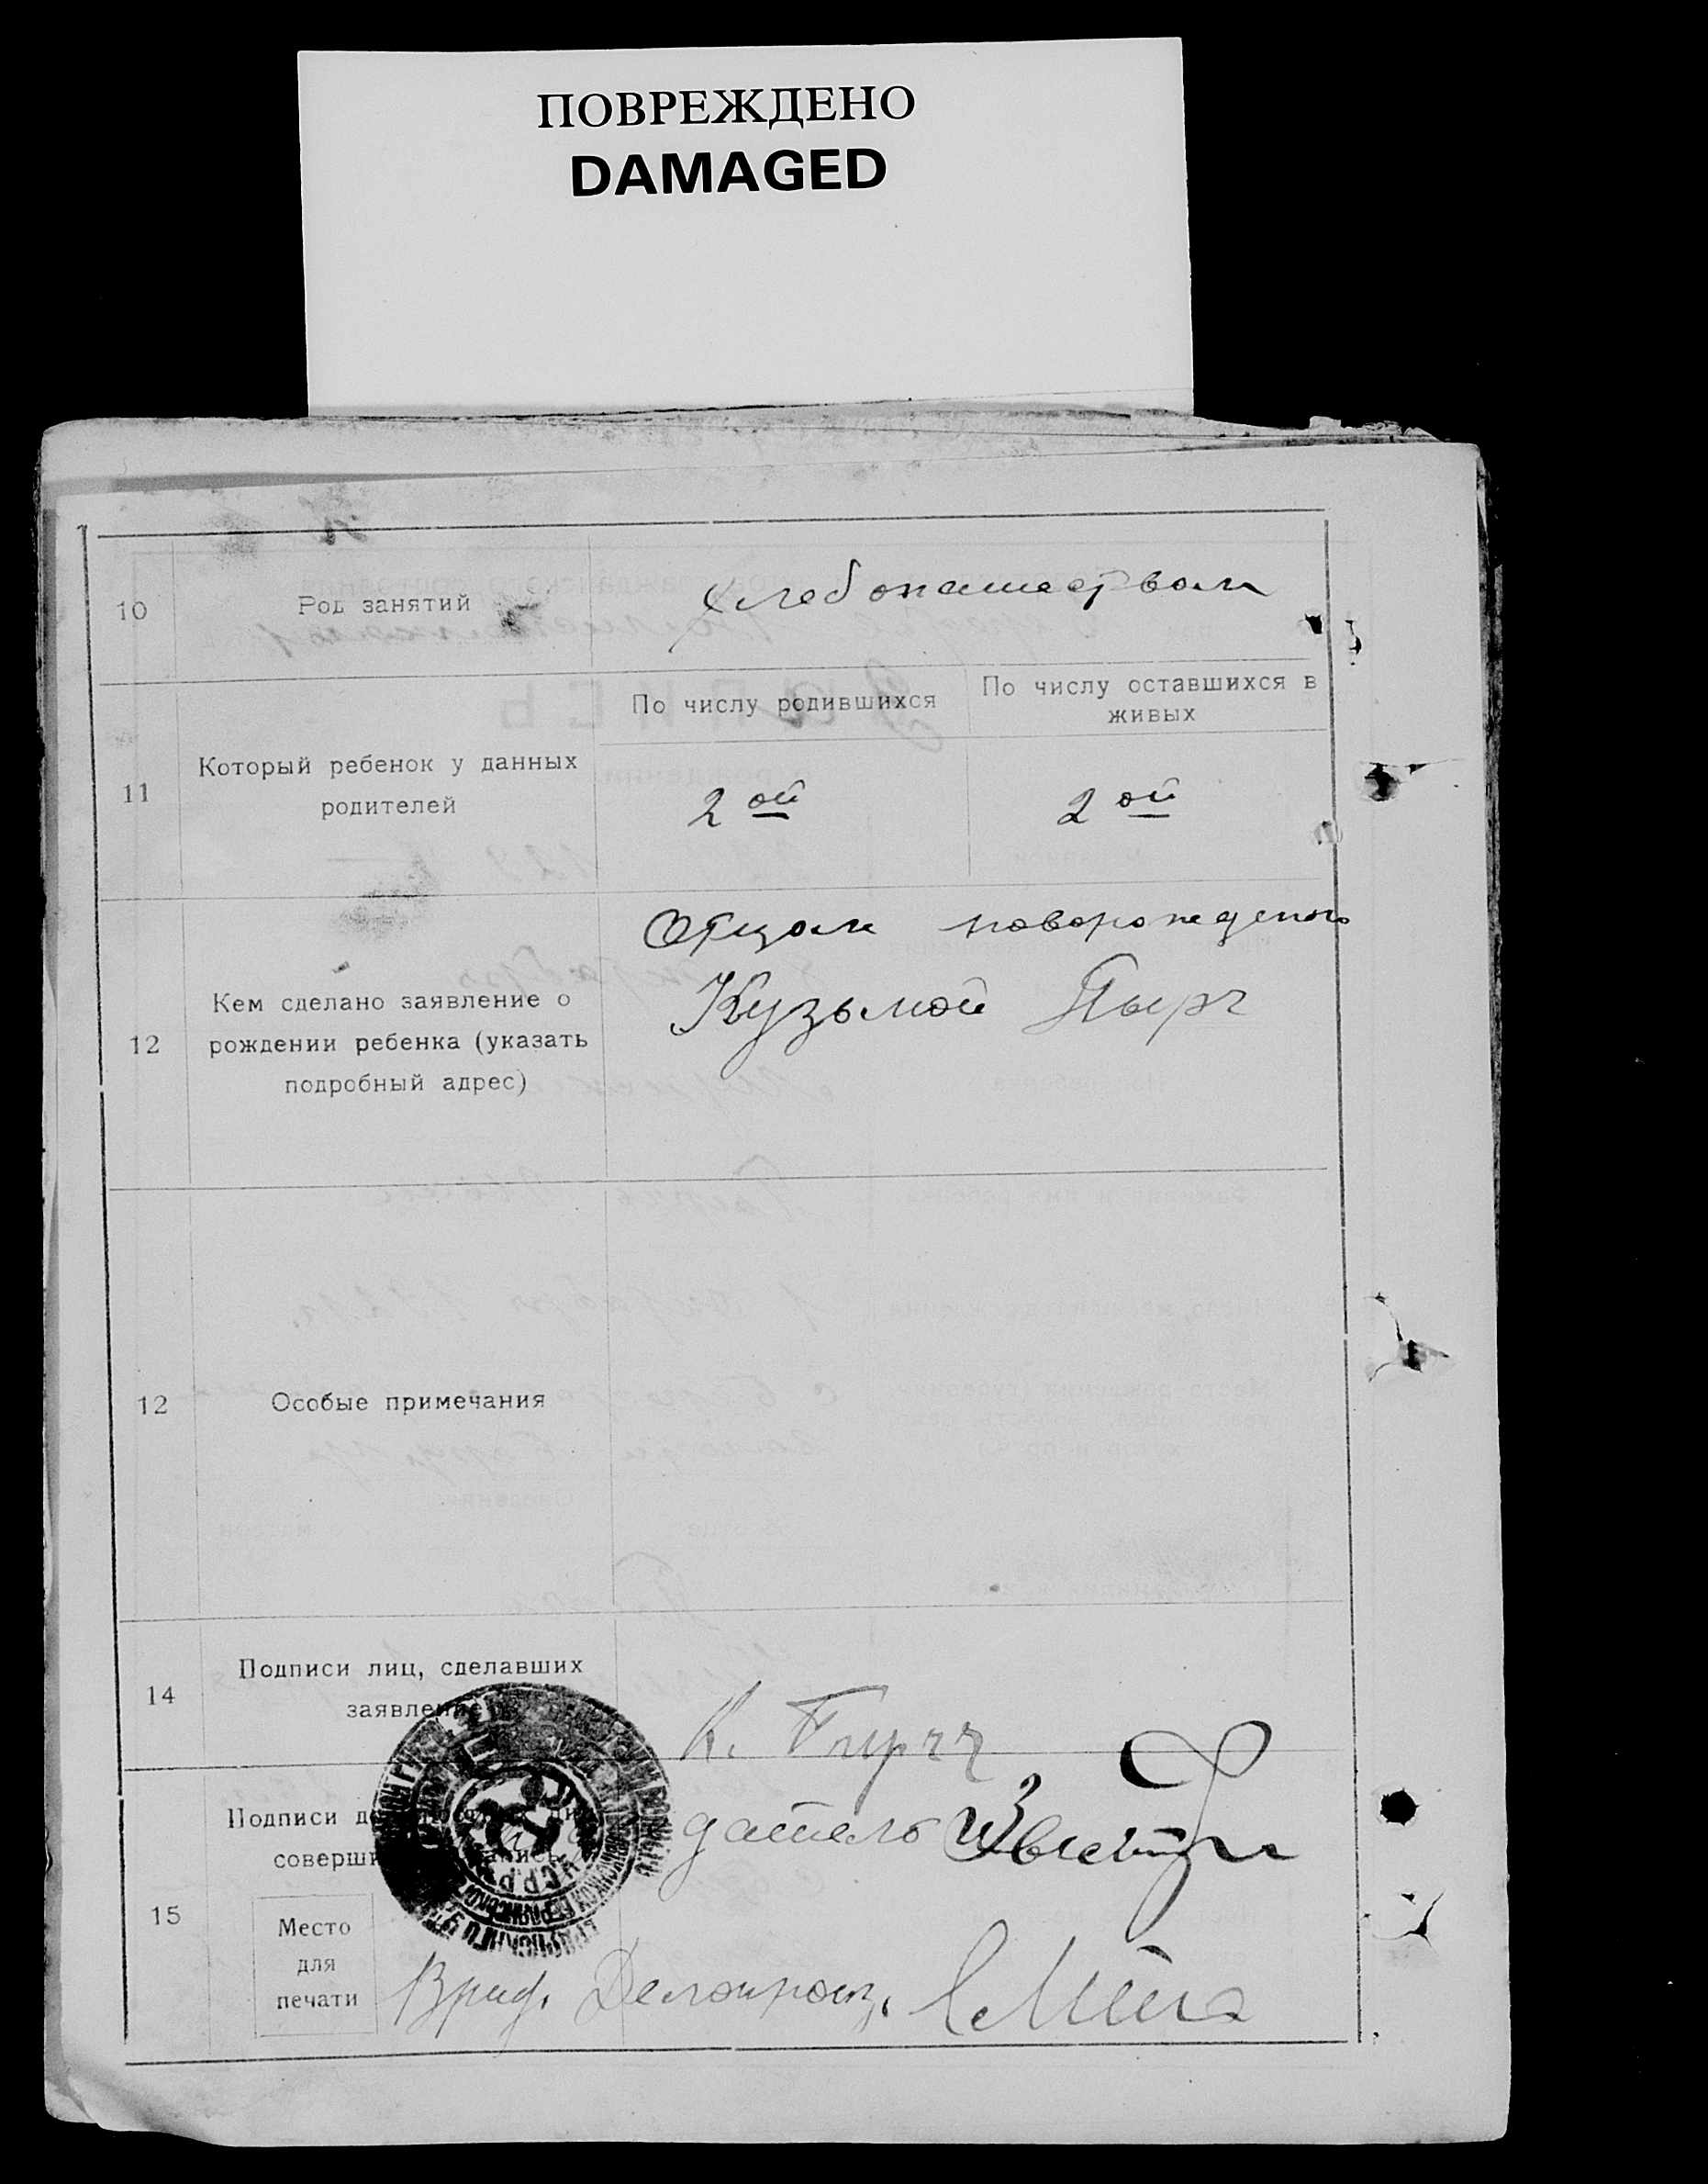 ПОВРЕЖДЕНО
DAMAGED
10 Род занятий хлебопашеством
11 Который ребенок у данных родителей
По числу родившихся
По числу оставшихся в живых
2 ой
2 ой
12 Кем сделано заявление о
рождении ребенка (указать
подробный адрес)
Отцом новорожденого
Кузьмой Пырч
12 Особые примечания
14 Подписи лиц, сделавших
заявление
К. Пырчч
15 Подписи
совершивших запись
датель
Место
для
печати
Врид. Делопроиз.